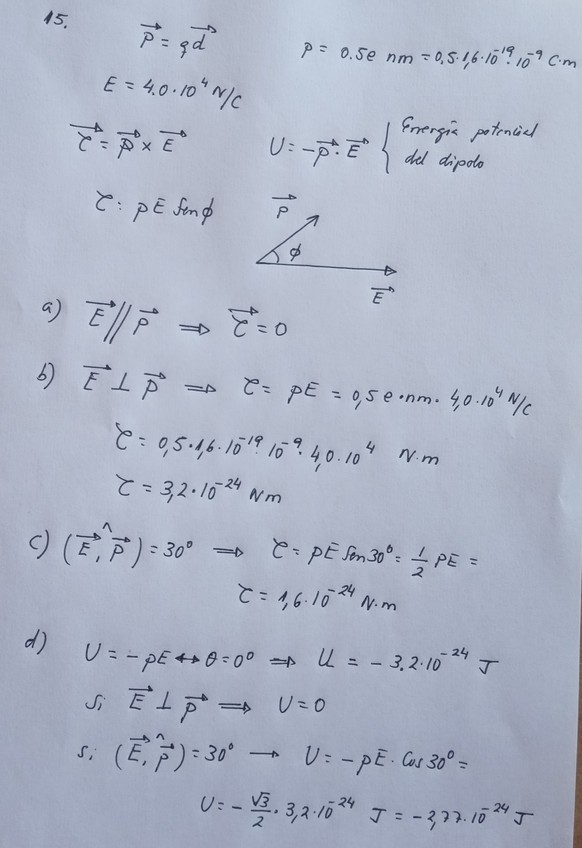 15.
→p = q→d
p = 0.5e nm = 0,5·1,6·10⁻¹⁹·10⁻⁹ C·m
E = 4.0·10⁴ N/C
→τ = →p × →E
U = -→p·→E { Energía potencial
del dipolo
τ: pE Senϕ
→p
ϕ
→E
a) →E // →p ⟹ →τ = 0
b) →E ⊥ →p ⟹ τ = pE = 0,5 e·nm· 4,0·10⁴ N/C
τ = 0,5·1,6·10⁻¹⁹·10⁻⁹·4,0·10⁴ N·m
τ = 3,2·10⁻²⁴ Nm
c) (→E,^→p) = 30° ⟹ τ = pE Sen30° = 1/2 pE =
τ = 1,6·10⁻²⁴ N·m
d) U = -pE ↔ θ=0° ⟹ U = -3.2·10⁻²⁴ J
si →E ⊥ →p ⟹ U = 0
si (→E,^→p) = 30° → U = -pE·Cos30° =
U = -√3/2 · 3,2·10⁻²⁴ J = -2,77·10⁻²⁴ J